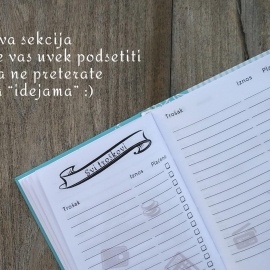 va sekcija
e vas uvek podsetiti
a ne preterate
"idejama" :)
Svi troškovi
Trošak
Iznos
Plaćeno
Trošak
Iznos
Plaćeno